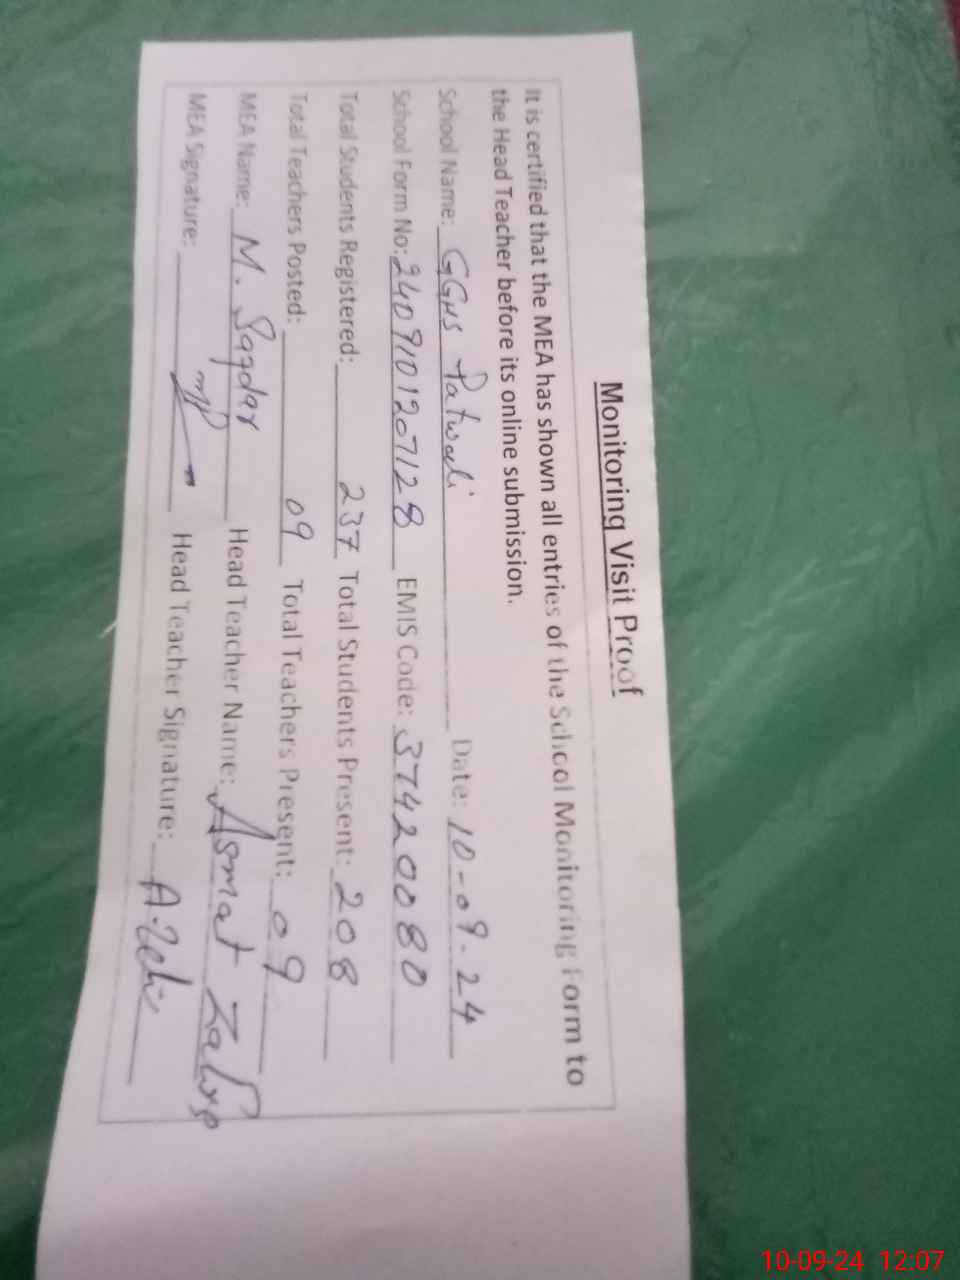 Monitoring Visit Proof
It is certified that the MEA has shown all entries of the School Monitoring Form to
the Head Teacher before its online submission.
School Name: GGHS Patwali Date: 10-09-24
School Form No: 2409101207128 EMIS Code: 37420080
Total Students Registered: 237 Total Students Present: 208
Total Teachers Posted: 09 Total Teachers Present: 09
MEA Name: M. Saqdar Head Teacher Name: Asmat
MEA Signature: Head Teacher Signature:
10-09-24 12:07